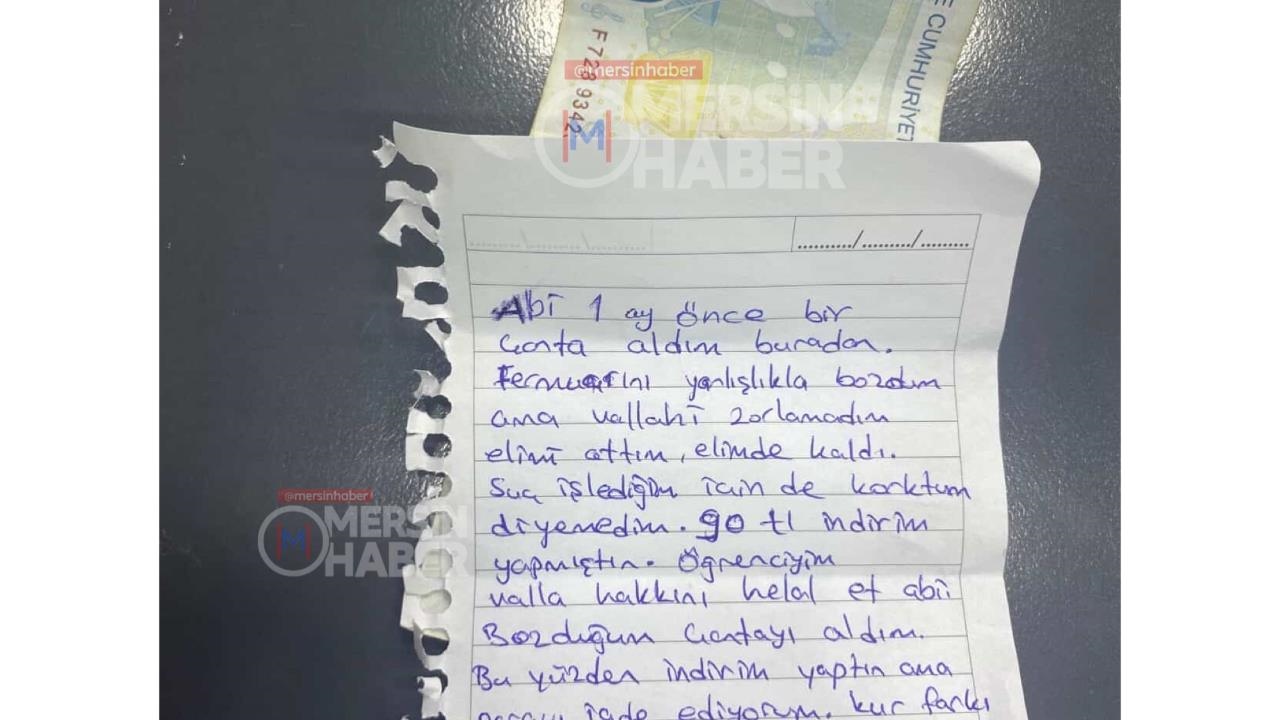 E CUMHURİYET
F729 9342
@mersinhaber
MERSİN
HABER
M
........../......../.........
........../......../.........
Abi 1 ay önce bir
Çanta aldım buradan.
Fermuarını yanlışlıkla bozdum
ama vallahi zorlamadım
elimi attım, elimde kaldı.
Suç işlediğim için de korktum
diyemedim. 90 tl indirim
yapmıştın. Öğrenciyim
valla hakkını helal et abi
Bozduğum Çantayı aldım.
Bu yüzden indirim yaptın ama
parayı iade ediyorum. kur farkı
@mersinhaber
MERSİN
HABER
M